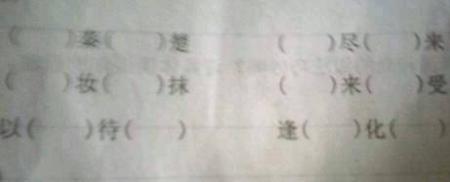 (    )荽(    )楚    (    )尽(    )来
(    )妆(    )抹    (    )来(    )受
以(    )待(    )    逢(    )化(    )